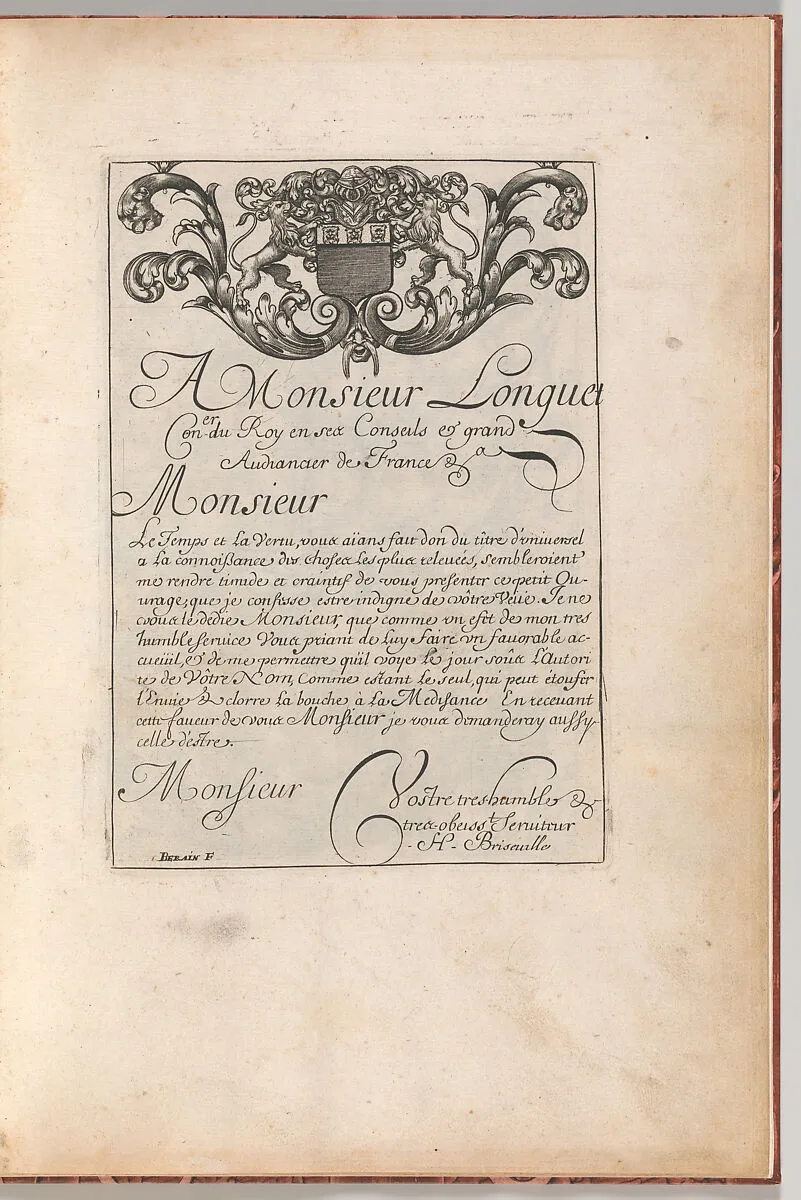 A Monsieur Longuet
Con.er du Roy en ses Conseils et grand
Audiancier de France &a
Monsieur
Le Temps et La Vertu, vous aïans fait don du tître d'vniversel
a La connoißance des choses Les plus relevées, sembleroient
me rendre timide et craintif de vous presenter ce petit Ou-
urage, que je confesse estre indigne de vôtre Veüe. Je ne
vous le dedie Monsieur, que comme vn efét de mon tres
humble service Vous priant de Luy faire vn fauorable ac-
cueüil, et de me permettre qu'il voye Le jour soûs L'Autori
te de Vôtre Nom, Comme estant Le seul, qui peut étoufer
l'Envie & clorre La bouche à La Medisance En recevant
cette faveur de vous Monsieur je vous demanderay aussy
celle d'éstre.
Monsieur
Vostre tres-humble &
tres-obeisst Seruiteur
- H - Briseville
BERAIN F